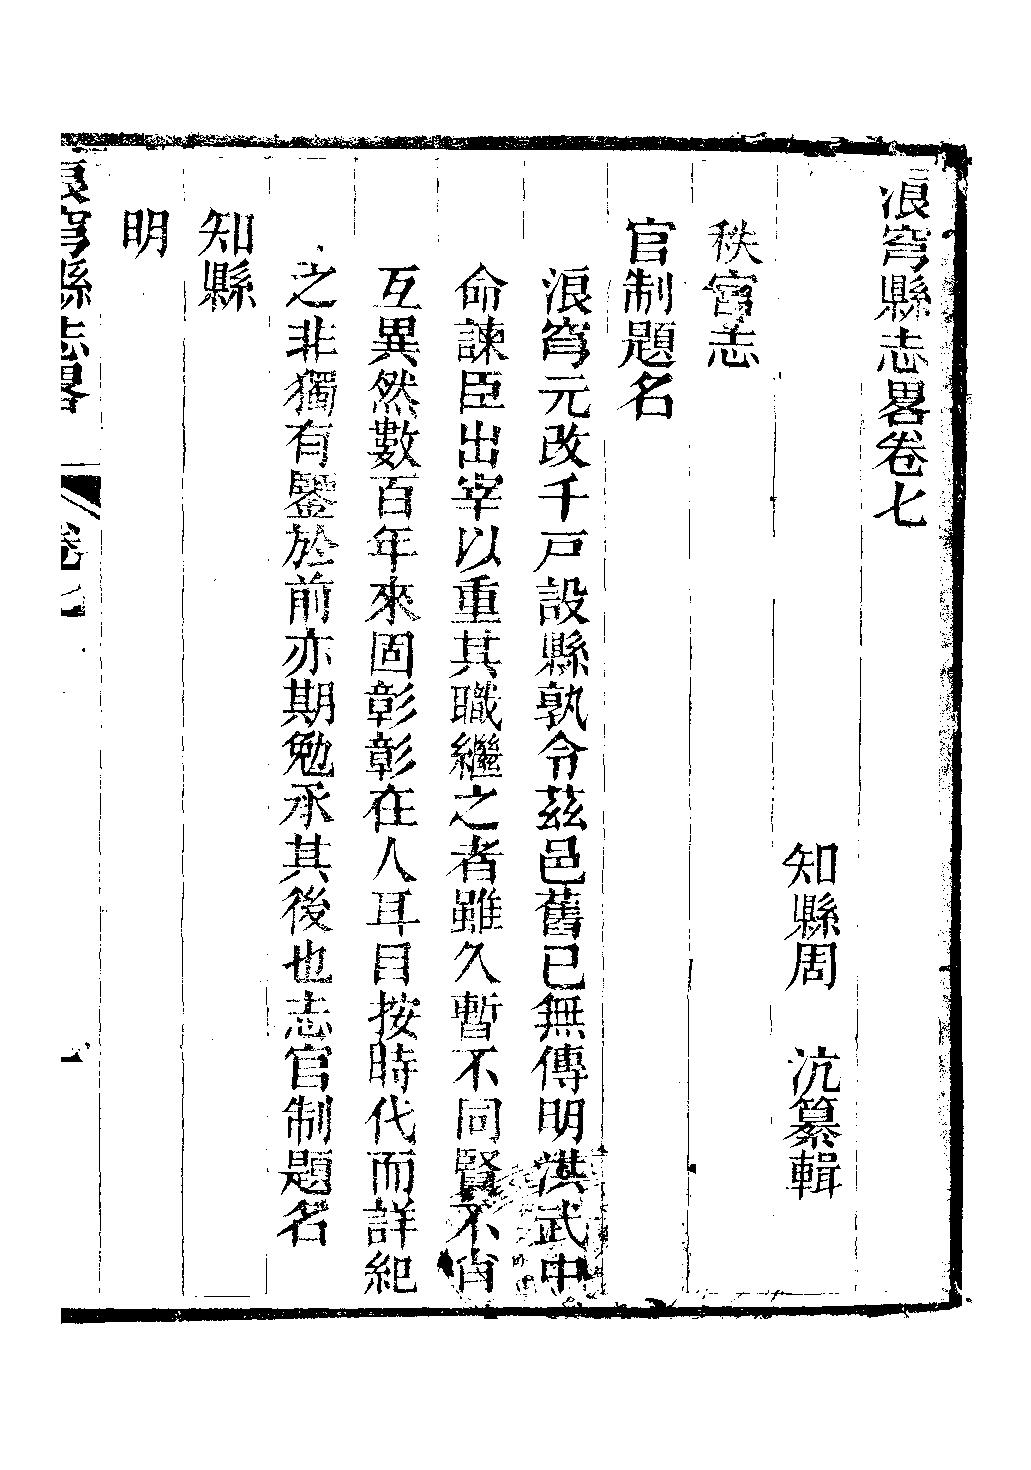 浪穹縣志畧卷七
知縣周　沆纂輯
秩官志
官制題名
浪穹元改千戸設縣孰令茲邑舊已無傳明洪武中
命諫臣出宰以重其職繼之者雖久暫不同賢不肖
互異然數百年來固彰彰在人耳目按時代而詳紀
之非獨有鑒於前亦期勉承其後也志官制題名
知縣
明
浪穹縣志畧　卷七　一